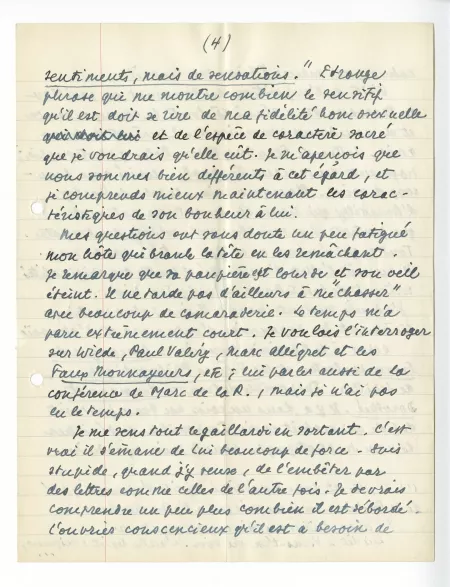 (4)
sentiments, mais de sensations." Etrange
phrase qui me montre combien le sensitif
qu'il est doit se rire de ma fidélité homosexuelle
et de l'espèce de caractère sacré
que je voudrais qu'elle eût. Je m'aperçois que
nous sommes bien différents à cet égard, et
je comprends mieux maintenant les carac-
téristiques de son bonheur à lui.
Mes questions ont sans doute un peu fatigué
mon hôte qui branle la tête en les remâchant.
Je remarque que sa paupière est lourde et son oeil
éteint. Il ne tarde pas d'ailleurs à me "chasser"
avec beaucoup de camaraderie. Le temps m'a
paru extrêmement court. Je voulais l'interroger
sur Wilde, Paul Valéry, Marc Allégret et les
Faux Monnayeurs, etc; lui parler aussi de la
conférence de Marc de la R., mais je n'ai pas
eu le temps.
Je me sens tout regaillardi en sortant. C'est
vrai il s'émane de lui beaucoup de force. Suis
stupide, quand j'y pense, de l'embêter par
des lettres comme celles de l'autre fois. Je devrais
comprendre un peu plus combien il est débordé.
L'ouvrier consciencieux qu'il est a besoin de